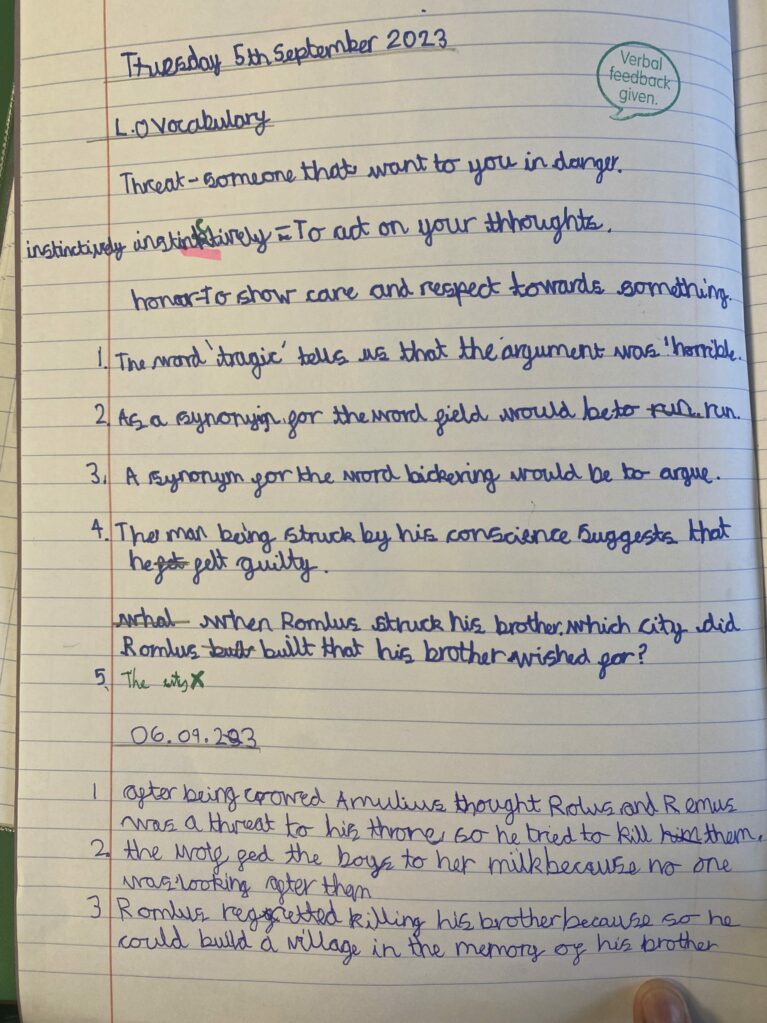 Tuesday 5th September 2023
Verbal
feedback
given.
L.O Vocabulary
Threat - someone that want to you in danger.
instinctively instinctively = To act on your thhoughts.
honor - To show care and respect towards something.
1. The word 'tragic' tells us that the argument was 'horrible.
2. As a synonym for the word field would be to run run.
3. A synonym for the word bickering would be to argue.
4. The man being struck by his conscience suggests that
he felt guilty.
what when Romlus struck his brother, which city did
Romlus built built that his brother wished for?
5. The city x
06.09.203
1 after being crowed Amulius thought Rolus and Remus
was a threat to his throne, so he tried to kill him them.
2. the wolf fed the boys to her milk because no one
was looking after than
3 Romlus regretted killing his brother because so he
could build a village in the memory of his brother